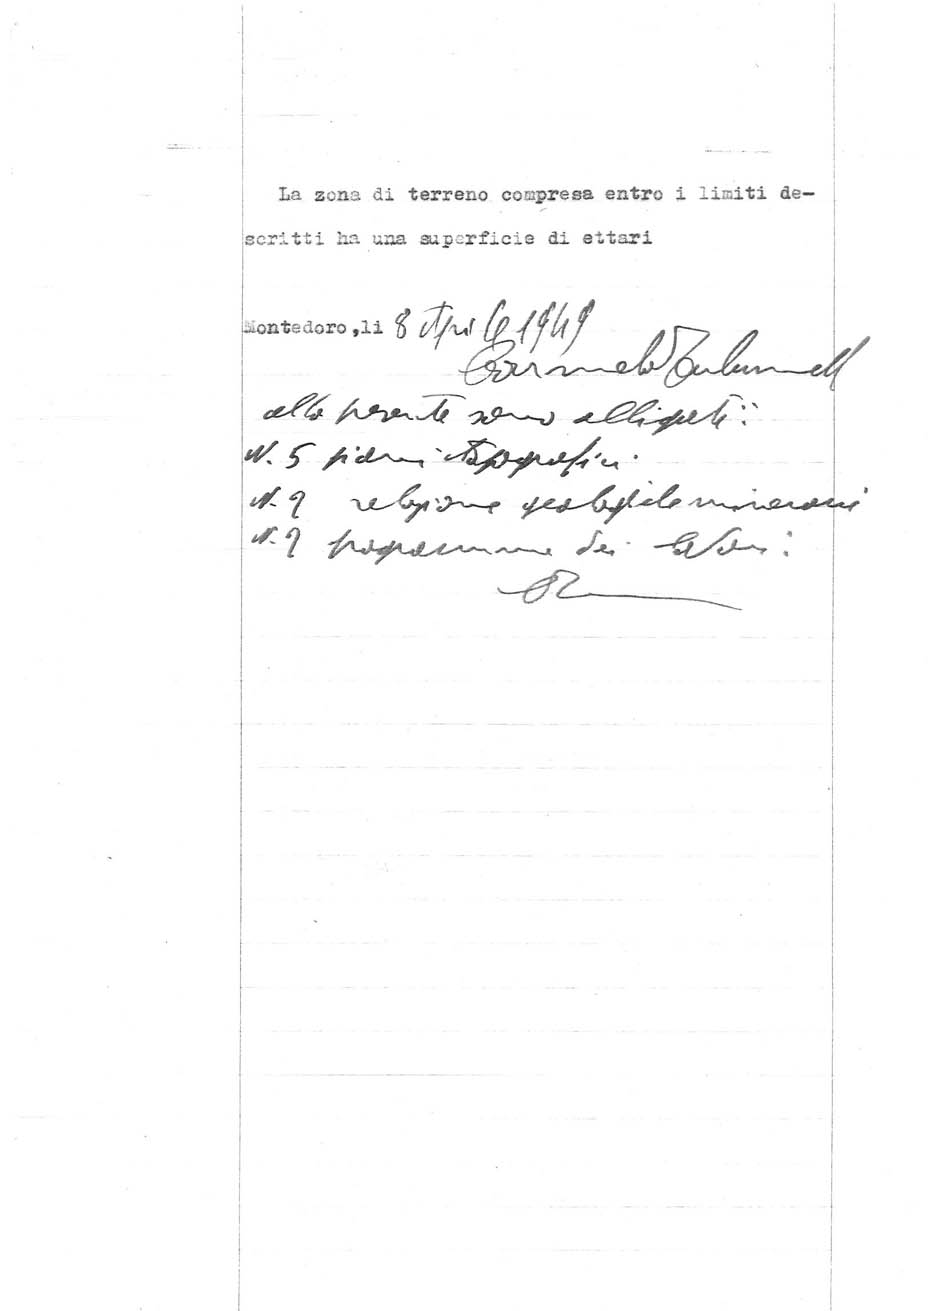 La zona di terreno compresa entro i limiti de-
scritti ha una superficie di ettari
Montedoro,li 8 Aprile 1949
Carmelo
alla presente sono alligati:
N. 5 piani topografici
N. 1 relazione geologica mineraria
N. 1 programma dei lavori